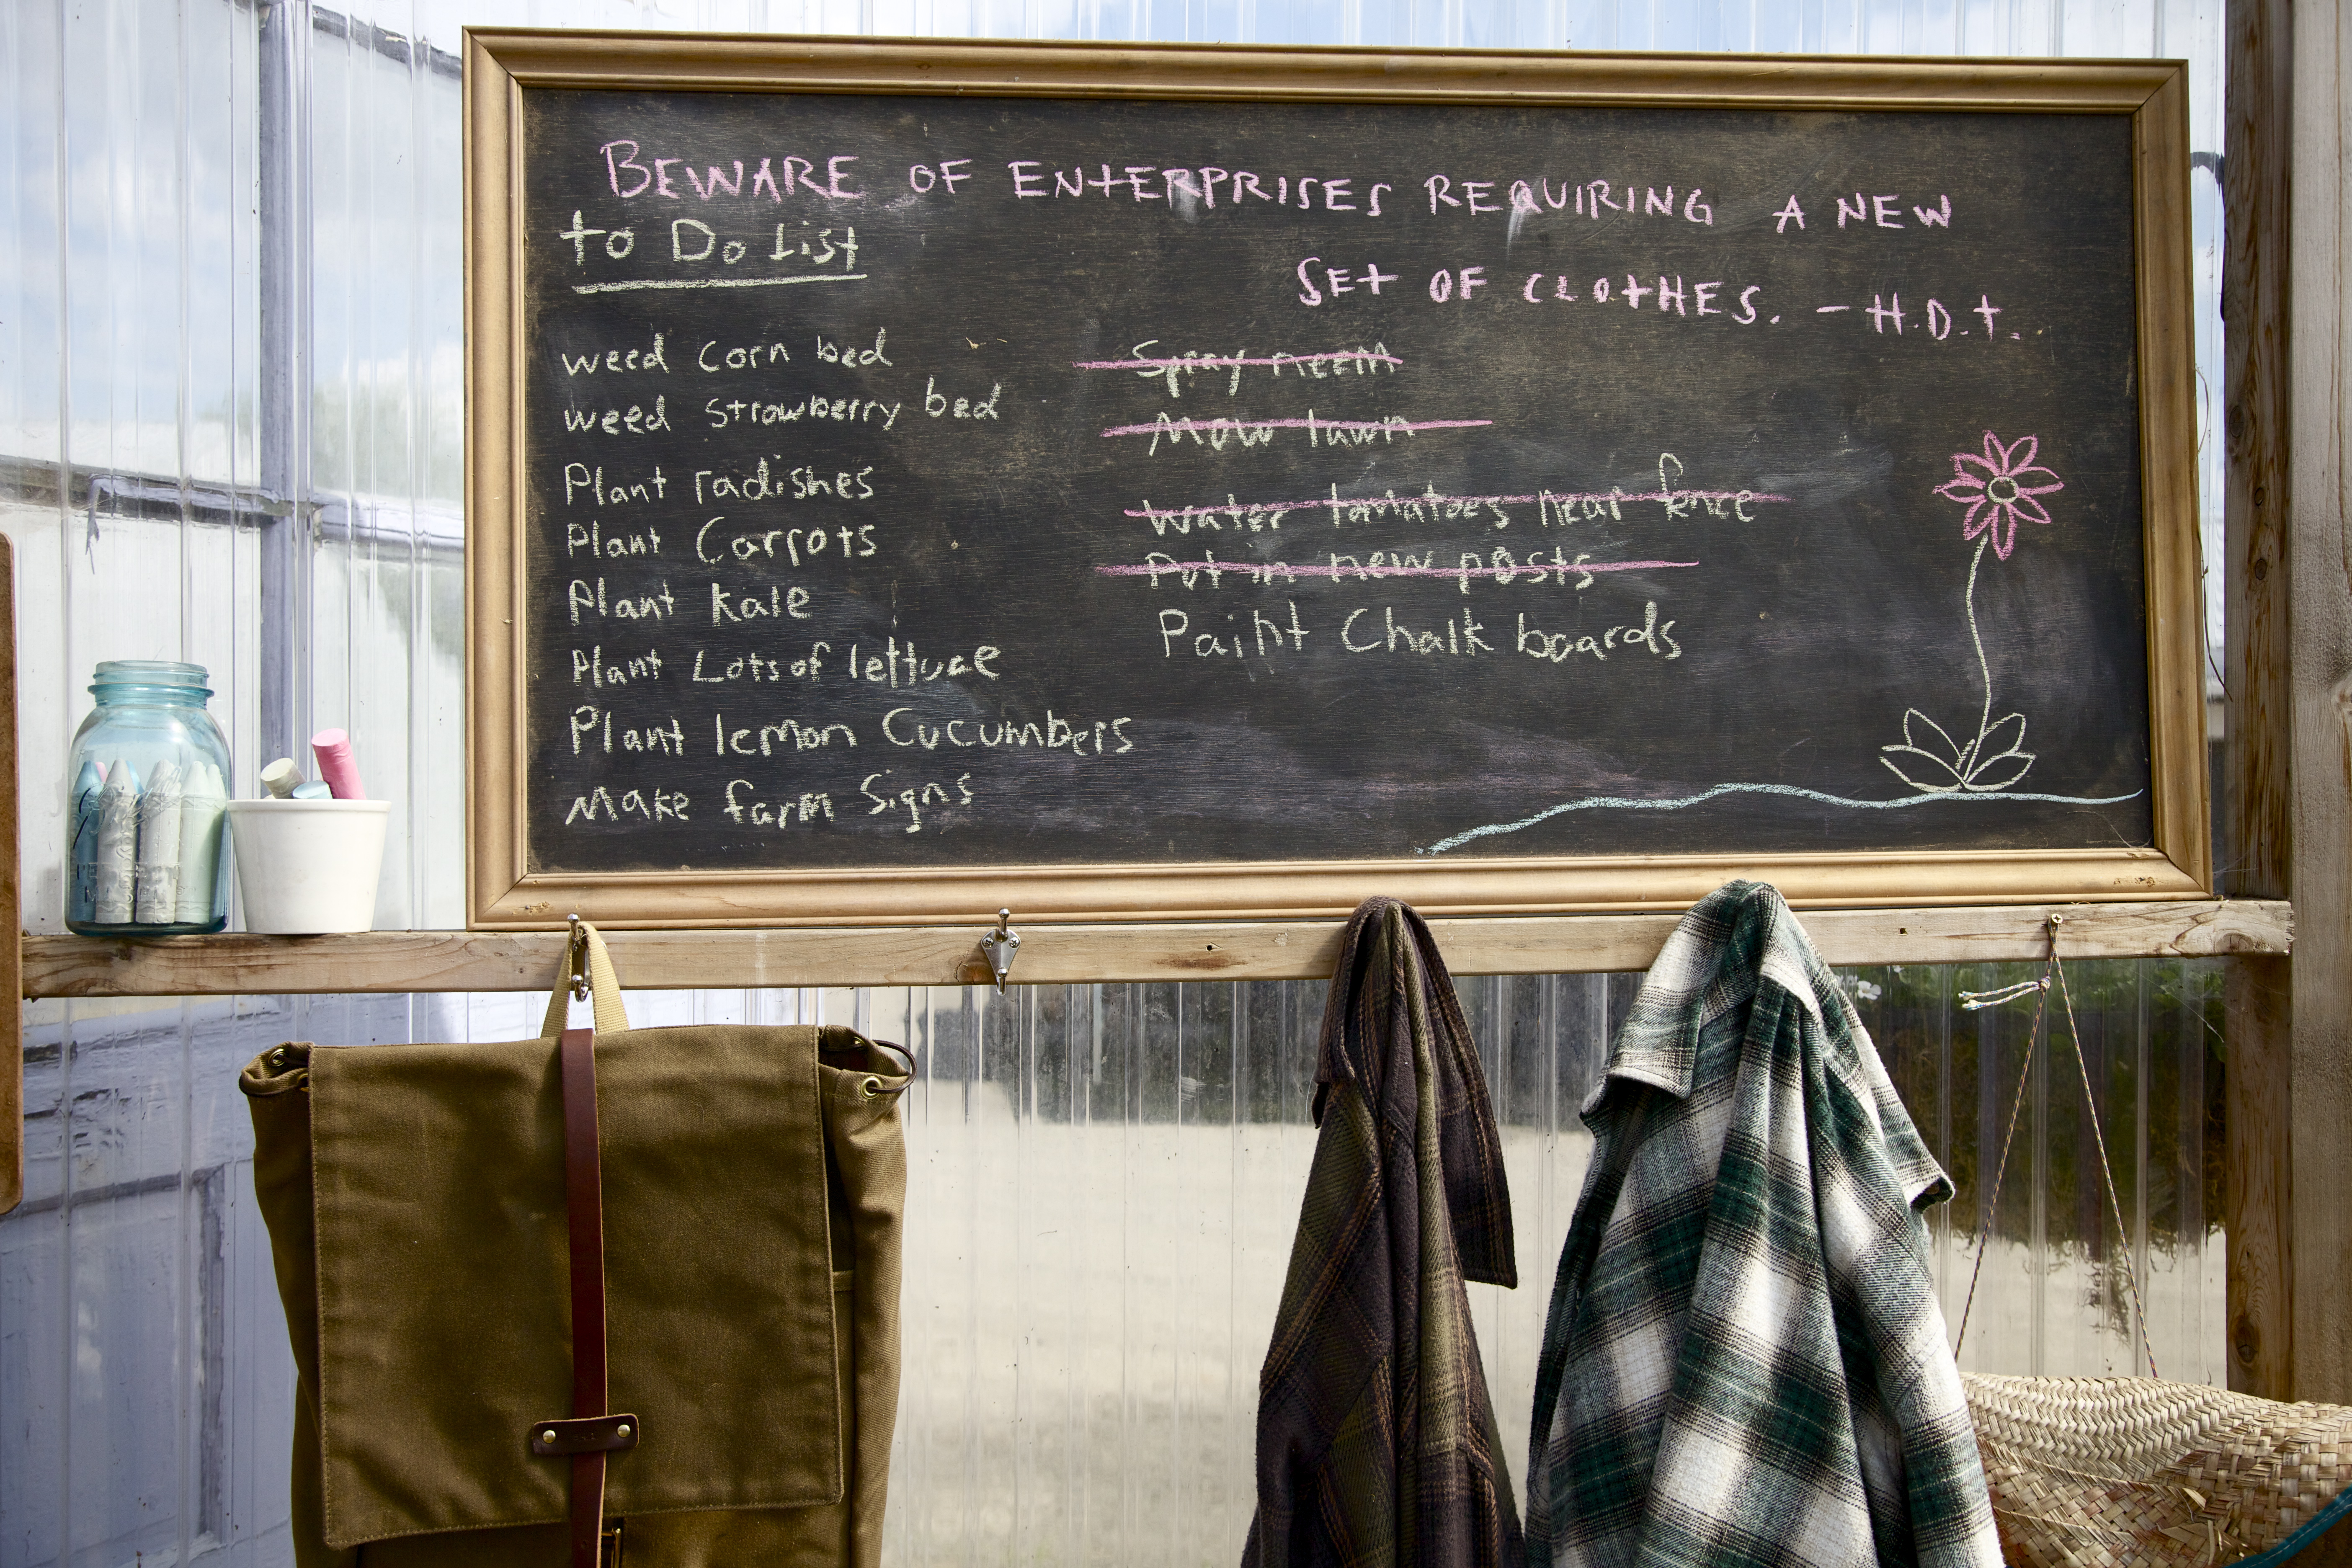 BEWARE OF ENTERPRISES REQUIRING A NEW
SET OF CLOTHES. - H.D.T.
to Do List
weed corn bed
weed strawberry bed
Plant radishes
Plant Carrots
Plant kale
Plant Lots of lettuce
Plant lemon Cucumbers
Make farm Signs
Spray neem
Mow lawn
Water tomatoes near fence
Put in new posts
Paint Chalk boards